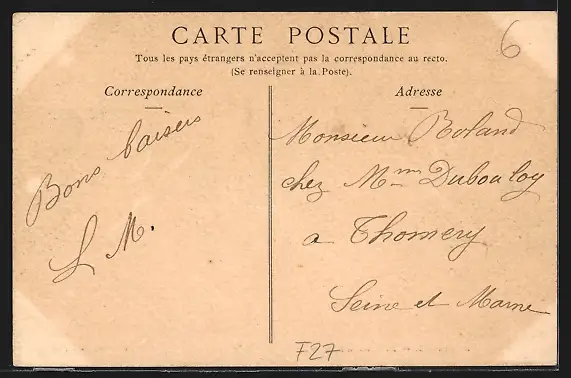 CARTE POSTALE
6
Tous les pays étrangers n'acceptent pas la correspondance au recto.
(Se renseigner à la Poste).
Correspondance
Bons baisers
L M.
Adresse
Monsieur Roland
chez Mme Dubouloy
a Thomery
Seine et Marne
F27